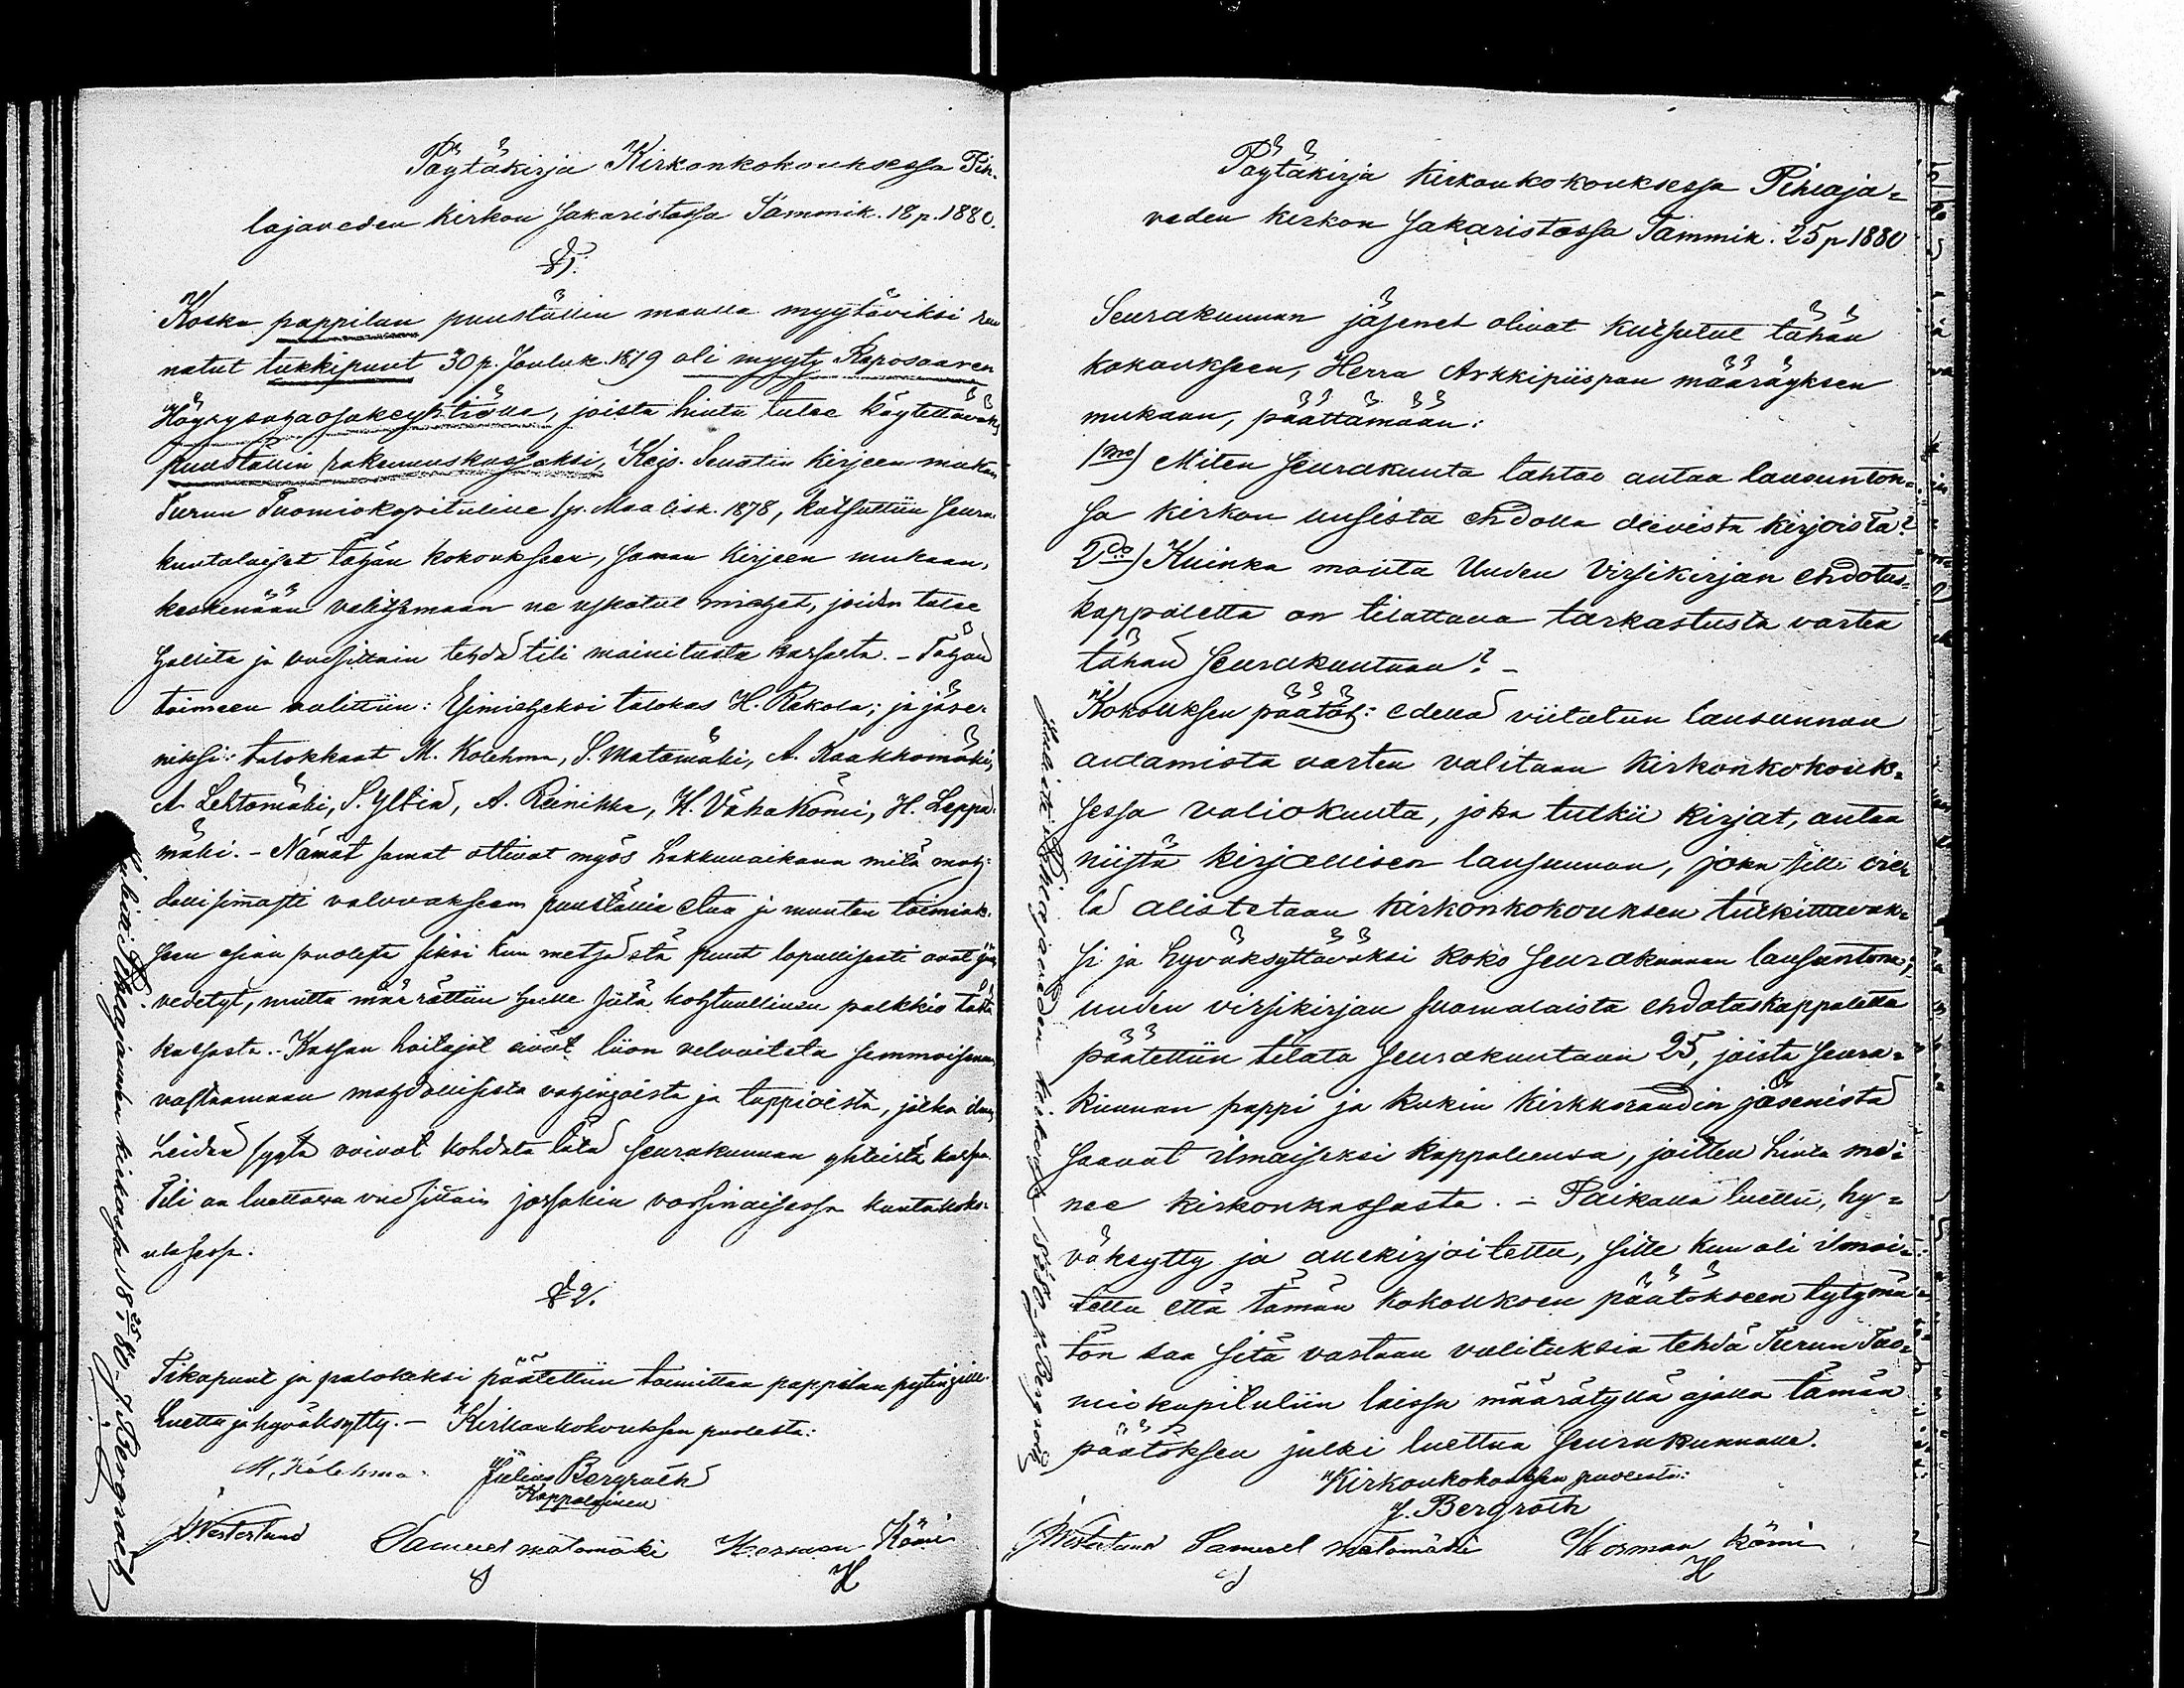 Pöytäkirja Kirkonkokouksessa Pih-
lajaveden kirkon sakaristossa Tammik. 18 p. 1880.
§ 1.
Koska pappilan puuställin maalla myytäviksi
natut tukkipuut 30 p. Jouluk. 1879 oli myyty Raposaaren
Höyrysahaosakeyhtiölle, joista hinta tulee käytettäväksi
puuställin rakennuskassaksi, Keis. Senatin kirjeen mukaan
Turun Tuomiokapitulille 1 p. Maalisk. 1878, kutsuttiin seura-
kuntalaiset tähän kokoukseen, saman kirjeen mukaan,
keskenään valitsemaan ne uskotut miehet, joiden tulee
hallita ja vuosittain tehdä tili mainitusta kassasta. - Tähän
toimeen valittiin: Esimieheksi talokas H. Rekola; ja jäse-
niksi: talokkaat M. Kolehma, S. Matomäki, A. Kaakkomäki,
A. Lehtomäki, S. Ylbiä, A. Reinikka, H. Vähäkömi, H. Leppä-
mäki. - Nämät samat ottivat myös hakkuuaikana mitä mah-
dollisimasti valvoaksean puuställin etua ja muuten toimiak-
seen asian puolesta siksi kun metsästä puut lopullisesti ovat
vedetyt, mutta määrättiin heille siitä kohtuullinen palkkio tästä
kassasta. - Kassan hoitajat eivät liion velvoiteta semmoisenaan
vastaamaan mahdollisista vahingoista ja tappioista, jotka ilman
heidän syytä voivat kohdata tätä seurakunnan yhteistä kassaa.
Tili on luettava vuosittain jossakin varsinaisessa kuntakoko-
uksessa.
§ 2.
Tikapuut ja palokeksi päätettiin toimittaa pappilan pytingille.
Luettu ja hyväksytty. - Kirkonkokouksen puolesta:
M. Kolehma. Julius Bergroth
Kappalainen
J. Westerlund Samuel matomäki Herman Kömi
S H
Julistettu Pihlajaveden kirkossa 18 25/1 80 - J. Bergroth
Pöytäkirja kirkonkokouksessa Pihlaja-
veden kirkon sakaristossa Tammik. 25 p 1880
Seurakunnan jäsenet olivat kutsutut tähän
kokoukseen, Herra Arkkipiispan määräyksen
mukaan, päättämään:
1mo) Miten seurakunta tahtoo antaa lausunton-
sa kirkon uusista ehdolla olevista kirjoista?
2do) Kuinka monta Uuden Virsikirjan ehdotus-
kappaletta on tilattava tarkastusta varten
tähän seurakuntaan? -
Kokouksen päätös: edellä viitatun lausunnon
antamista varten valitaan kirkonkokouk-
sessa valiokunta, joka tutkii kirjat, antaa
niistä kirjallisen lausunnon, joka silli vie-
lä alistetaan kirkonkokouksen tutkittavak-
si ja hyväksyttäväksi koko seurakunnan lausuntona;
uuden virsikirjan suomalaista ehdotuskappaletta
päätettiin tilata seurakuntaan 25, joista seura-
kunnan pappi ja kukin kirkkoraadin jäsenistä
saavat ilmaiseksi kappaleensa, joitten hinta me-
nee kirkonkassasta. - Paikalla luettu, hy-
väksytty ja allekirjoitettu, sitte kun oli ilmoi-
tettu että tämän kokouksen päätökseen tytymä-
tön saa sitä vastaan valituksia tehdä Turun Tuo-
miokapituliin laissa määrätyllä ajalla tämän
päätöksen julki luettua seurakunnalle.
Kirkonkokouksen puolesta:
J. Bergroth
J Westerlund Samuel matomäki Herman Kömi
S H
Julistettu Pihlajaveden kirkossa J. Bergroth